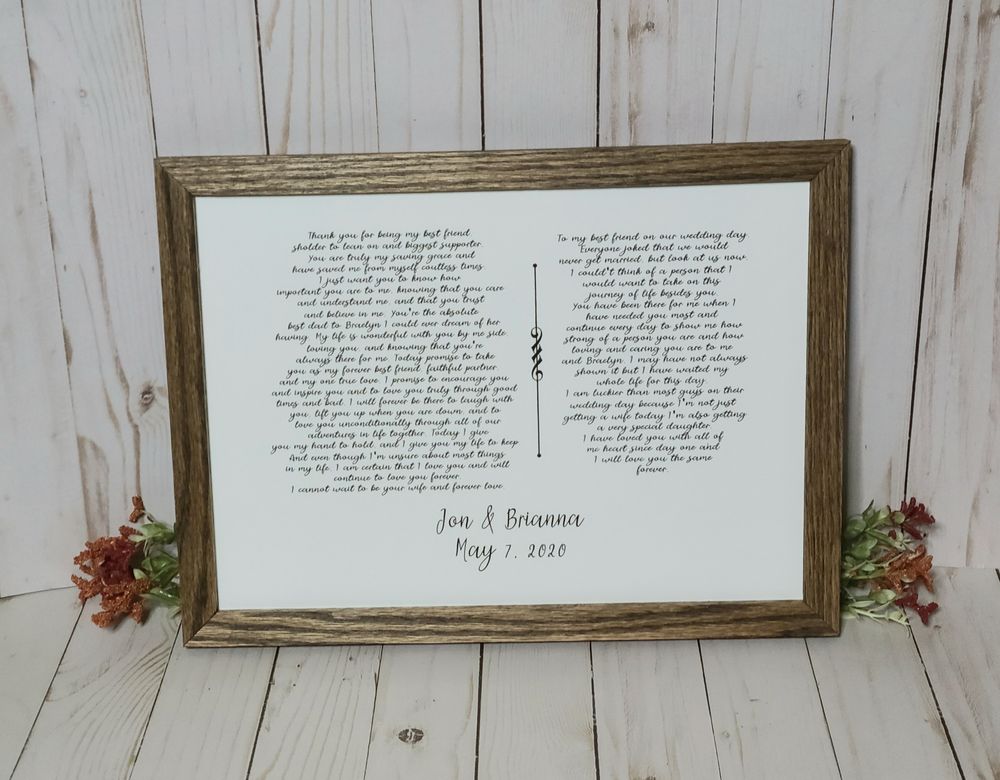 Thank you for being my best friend,
sholder to lean on and biggest supporter.
You are truly my saving grace and
have saved me from myself coutless times.
I just want you to know how
important you are to me, knowing that you care
and understand me, and that you trust
and believe in me. You're the absolute
best dad to Braelyn I could ever dream of her
having. My life is wonderful with you by me side,
loving you, and knowing that you're
always there for me. Today promise to take
you as my forever best friend, faithful partner,
and my one true love. I promise to encourage you
and inspire you and to love you truly through good
times and bad. I will forever be there to laugh with
you, lift you up when you are down, and to
love you unconditionally through all of our
adventures in life together. Today I give
you my hand to hold, and I give you my life to keep.
And even though I'm unsure about most things
in my life, I am certain that I love you and will
continue to love you forever.
I cannot wait to be your wife and forever love.
To my best friend on our wedding day.
Everyone joked that we would
never get married, but look at us now.
I could't think of a person that I
would want to take on this
journey of life besides you.
You have been there for me when I
have needed you most and
continue every day to show me how
strong of a person you are and how
loving and caring you are to me
and Braelyn. I may have not always
shown it but I have waited my
whole life for this day.
I am luckier than most guys on their
wedding day because I'm not just
getting a wife today I'm also getting
a very special daughter.
I have loved you with all of
me heart since day one and
I will love you the same
forever.
Jon & Brianna
May 7, 2020